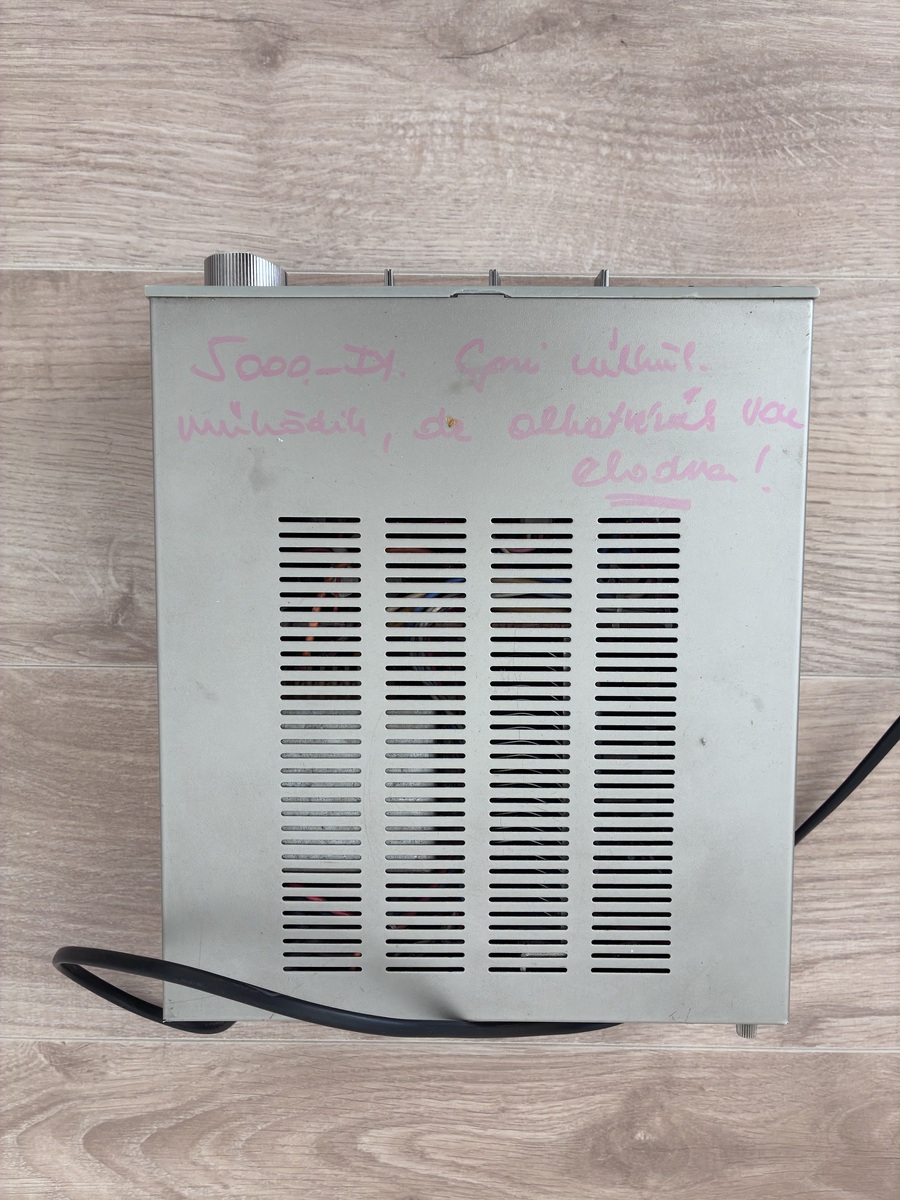 5000.-Ft. Gari nélkül.
működik, de alkatrésznek van
eladva!